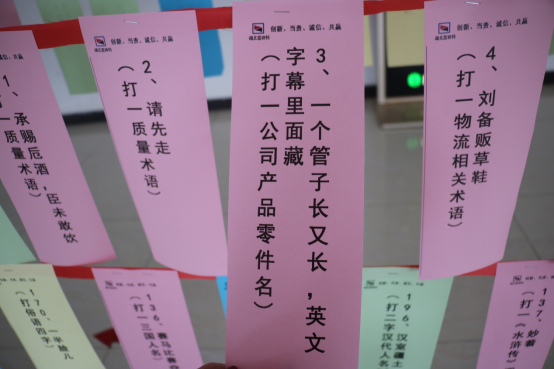 1、承赐卮酒，臣未敢饮
打一质量术语）
创新、当责、诚信、共赢
2、请先走
（打一质量术语）
创新、当责、诚信、共赢
3、一个管子长又长，英文
字幕里面藏
（打一公司产品零件名）
创新、当责、诚信、共赢
4、刘备贩草鞋
（打一物流相关术语）
170、一半
（打俗语四字）
136、赛马比赛
（打一三国人名）
196、汉室疆土
（打二字汉代人名
137、妙着
（打一《水浒传》